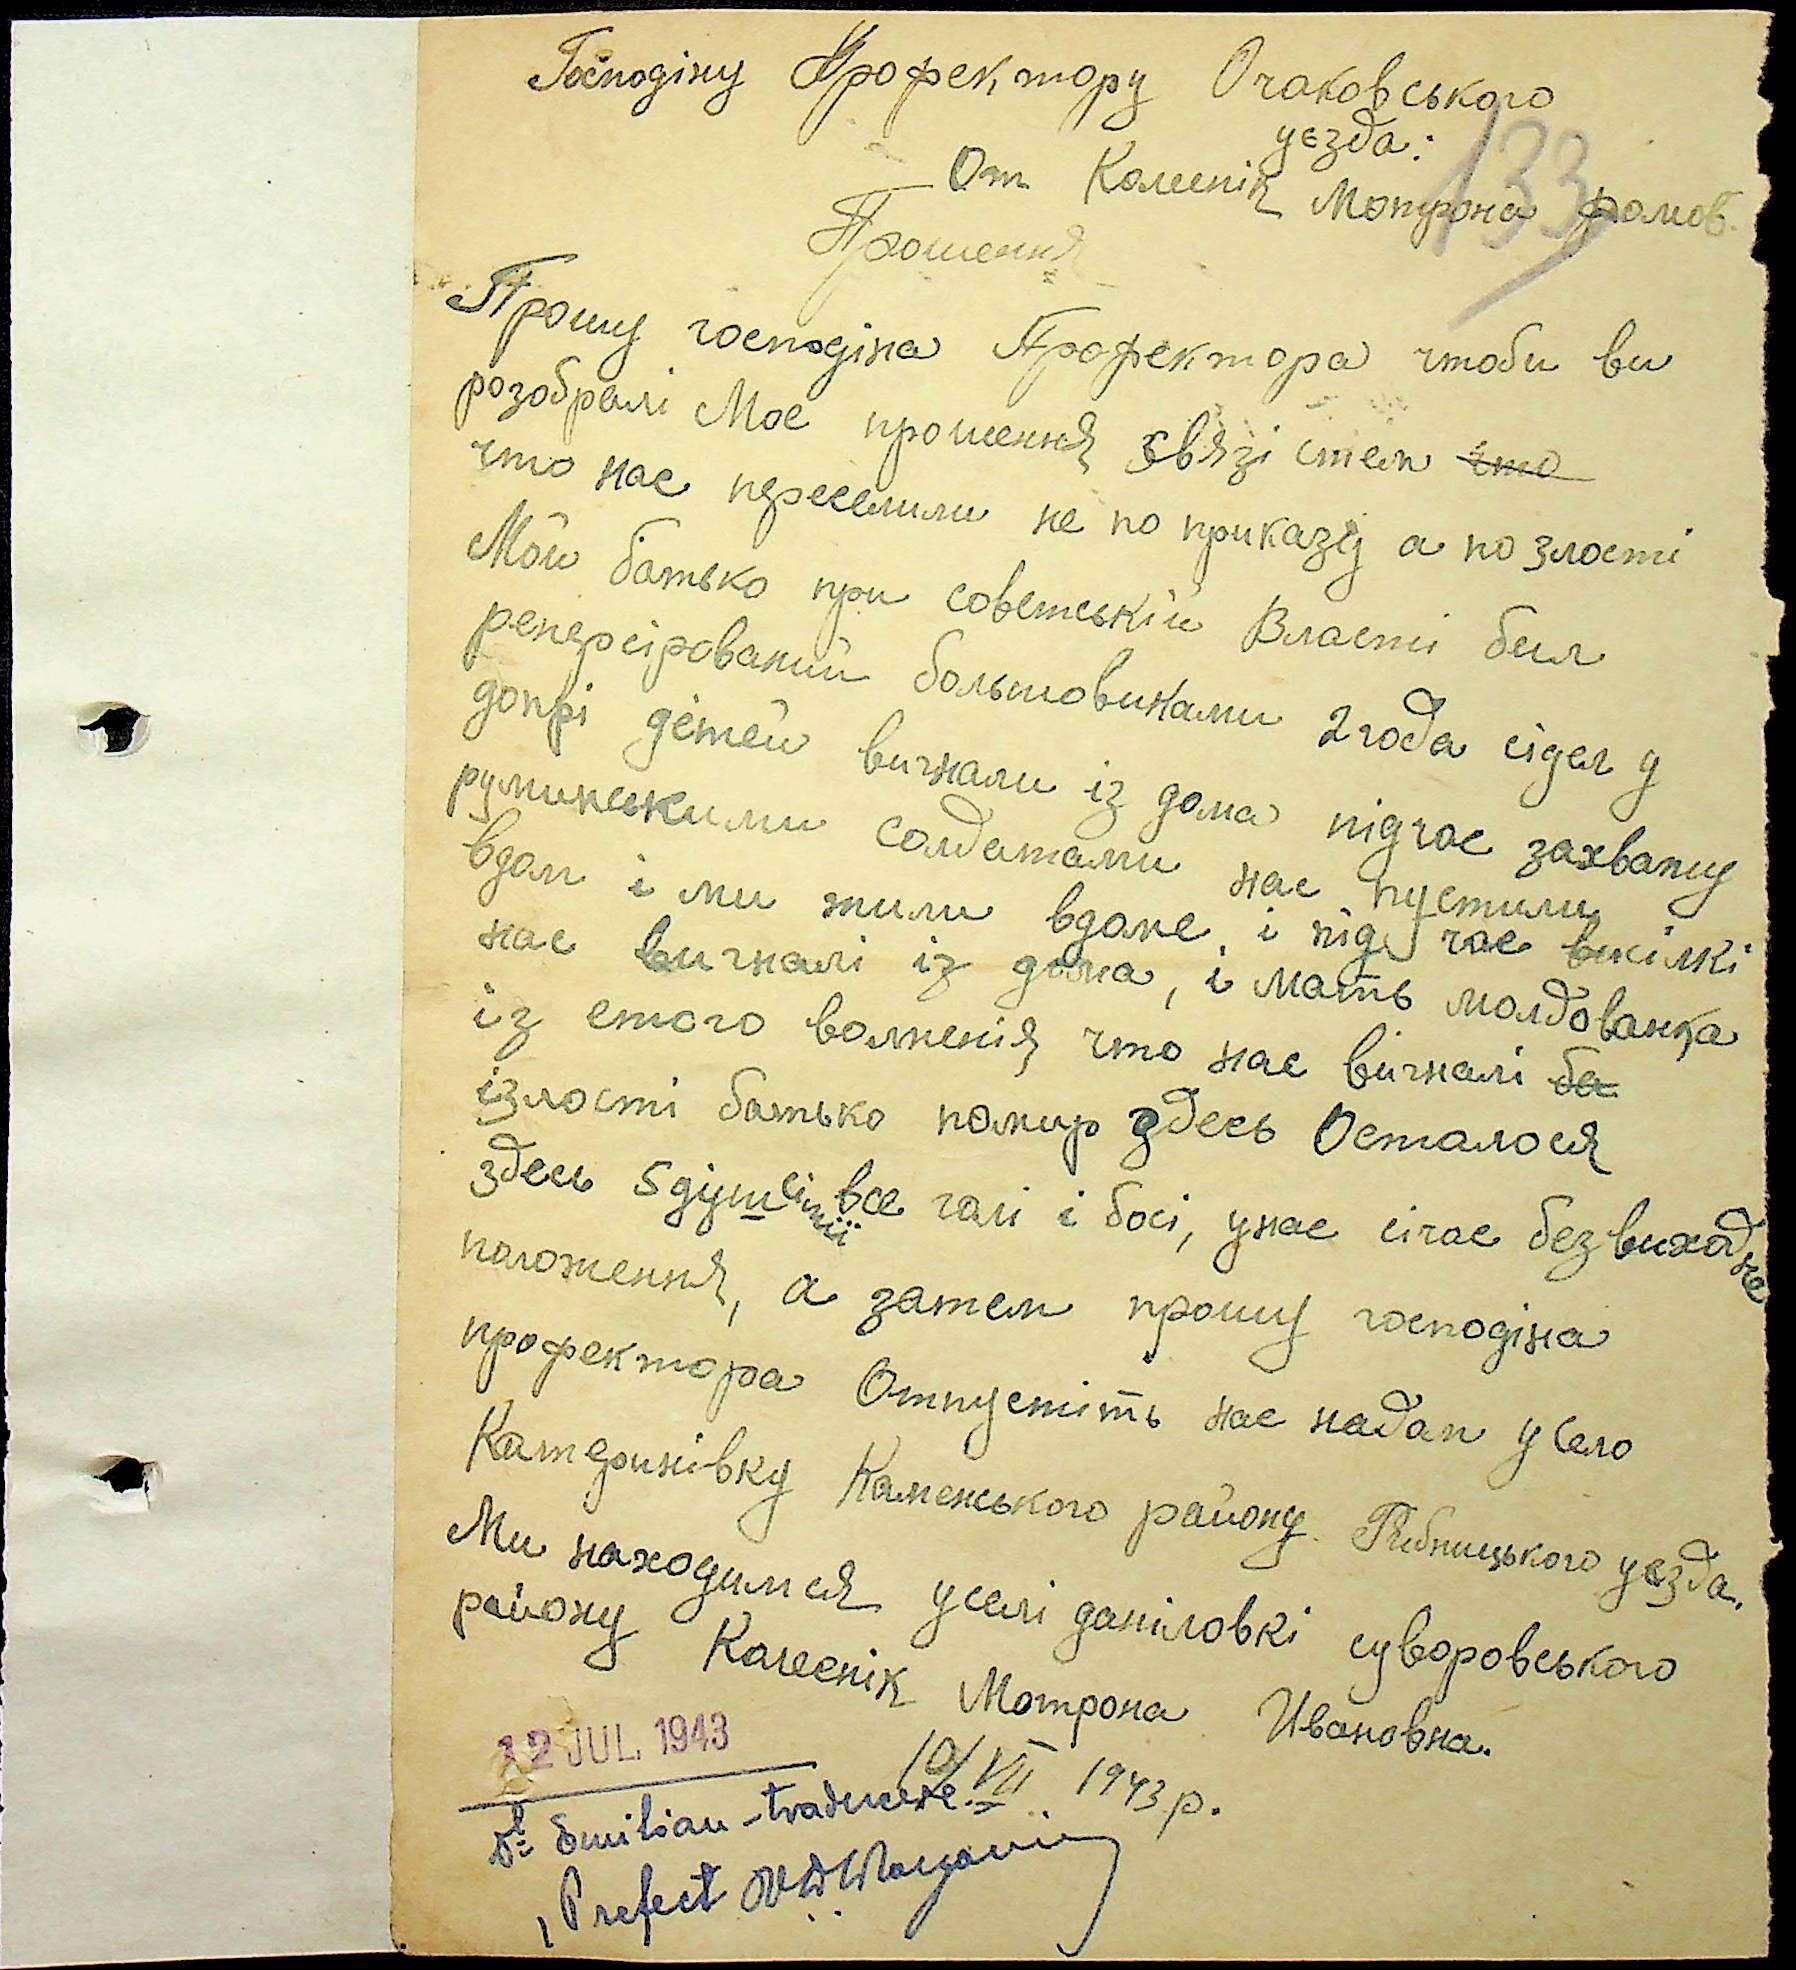 Господіну Профектору Очаковського
уєзда:
133
От Колєснік Мотрона
Прошення
Прошу господіна Профектора чтоби ви
розобралі Моє прошення звязі стем что
что нас переселили не по приказу а по злості
Мой батько при совєтській Власті бил
репресірований большовиками 2 года сідел у
допрі дєтей вигнали із дома підчас захвату
руминськими солдатами нас пустили
вдом і ми жили вдоме, і під час висілкі
нас вигналі із дома, і мать молдованка
із етого волненія что нас вігналі ба
ізлості батько помир здесь Осталося
здесь 5 душ сімії все галі і босі, унас січас безвиходне
положення, а затем прошу господіна
профектора Отпустіть нас надом усело
Катеринівку Каменського району Рибницького уєзда.
Ми находимся уселі даніловкі суворовського
району Колєснік Мотрона Ивановна.
12 JUL. 1943
10/VII 1943 р.
Dl. Emilian - traducere.
Prefect